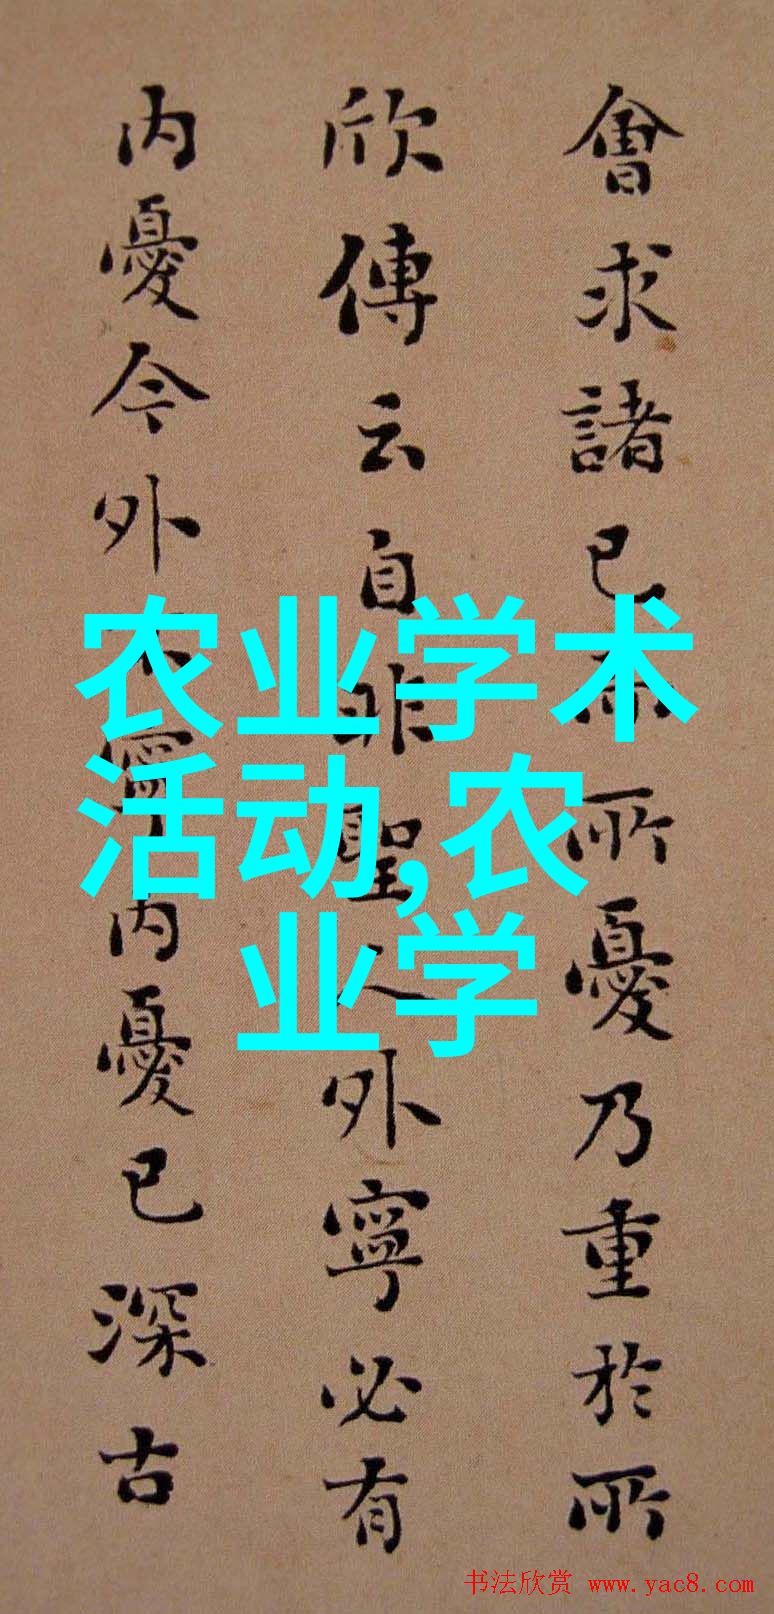 會求諸已而所憂乃重於所
欣傳云自非聖人外寧必有
内憂今外不寧内憂已深古
农业学术
活动,农
业学
书法欣赏 www.yac8.com